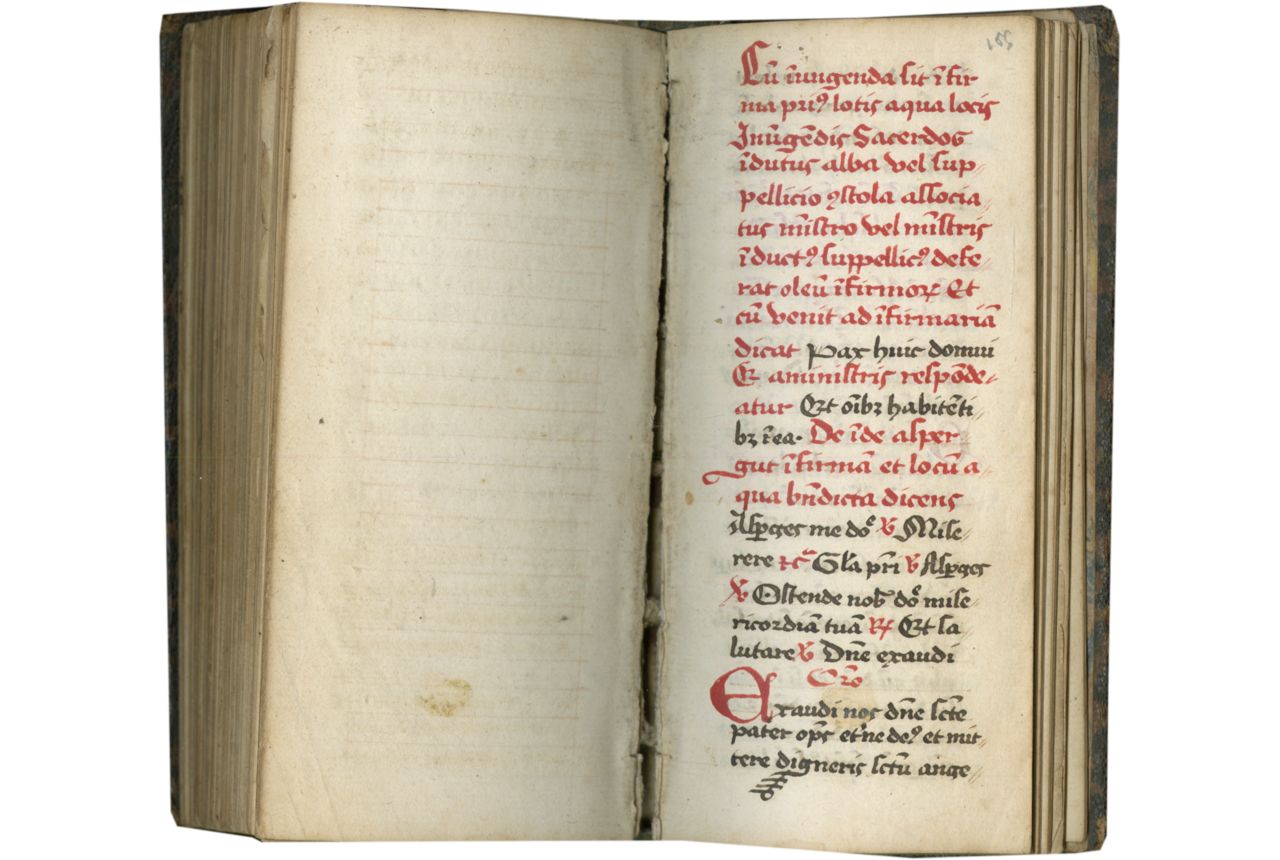 155
Cū īnūgenda sit ī fir
ma priꝰ lotis aqua locis
Jnūgēdis Sacerdos
īdutus alba vel sup
pellicio ꝯ stola associa
tus mīstro vel mīstris
īductꝰ suppellicꝰ defe
rat oleū īfirmoꝝ Et
cū venit ad īfirmariā
dicat Pax huic domui
Et aministris respōde
atur Et oībꝫ habitēti
bꝫ ī ea. De īde asper
gat īfirmā et locū a
qua bn̄dicta dicens
Asꝑges me do͛ ℣ Mise
rere ⁊c̄ Gl̄a pr̄i ℣ Asꝑges
℣ Ostende nob̄ do͛ mise
ricordiā tuā ℟ Et sa
lutare ℣ Dn̄e exaudi
Or̄o
Exaudi nos dn̄e sc̄te
pater op̄s et̄ne deꝰ et mit
tere digneris sc̄tū ange